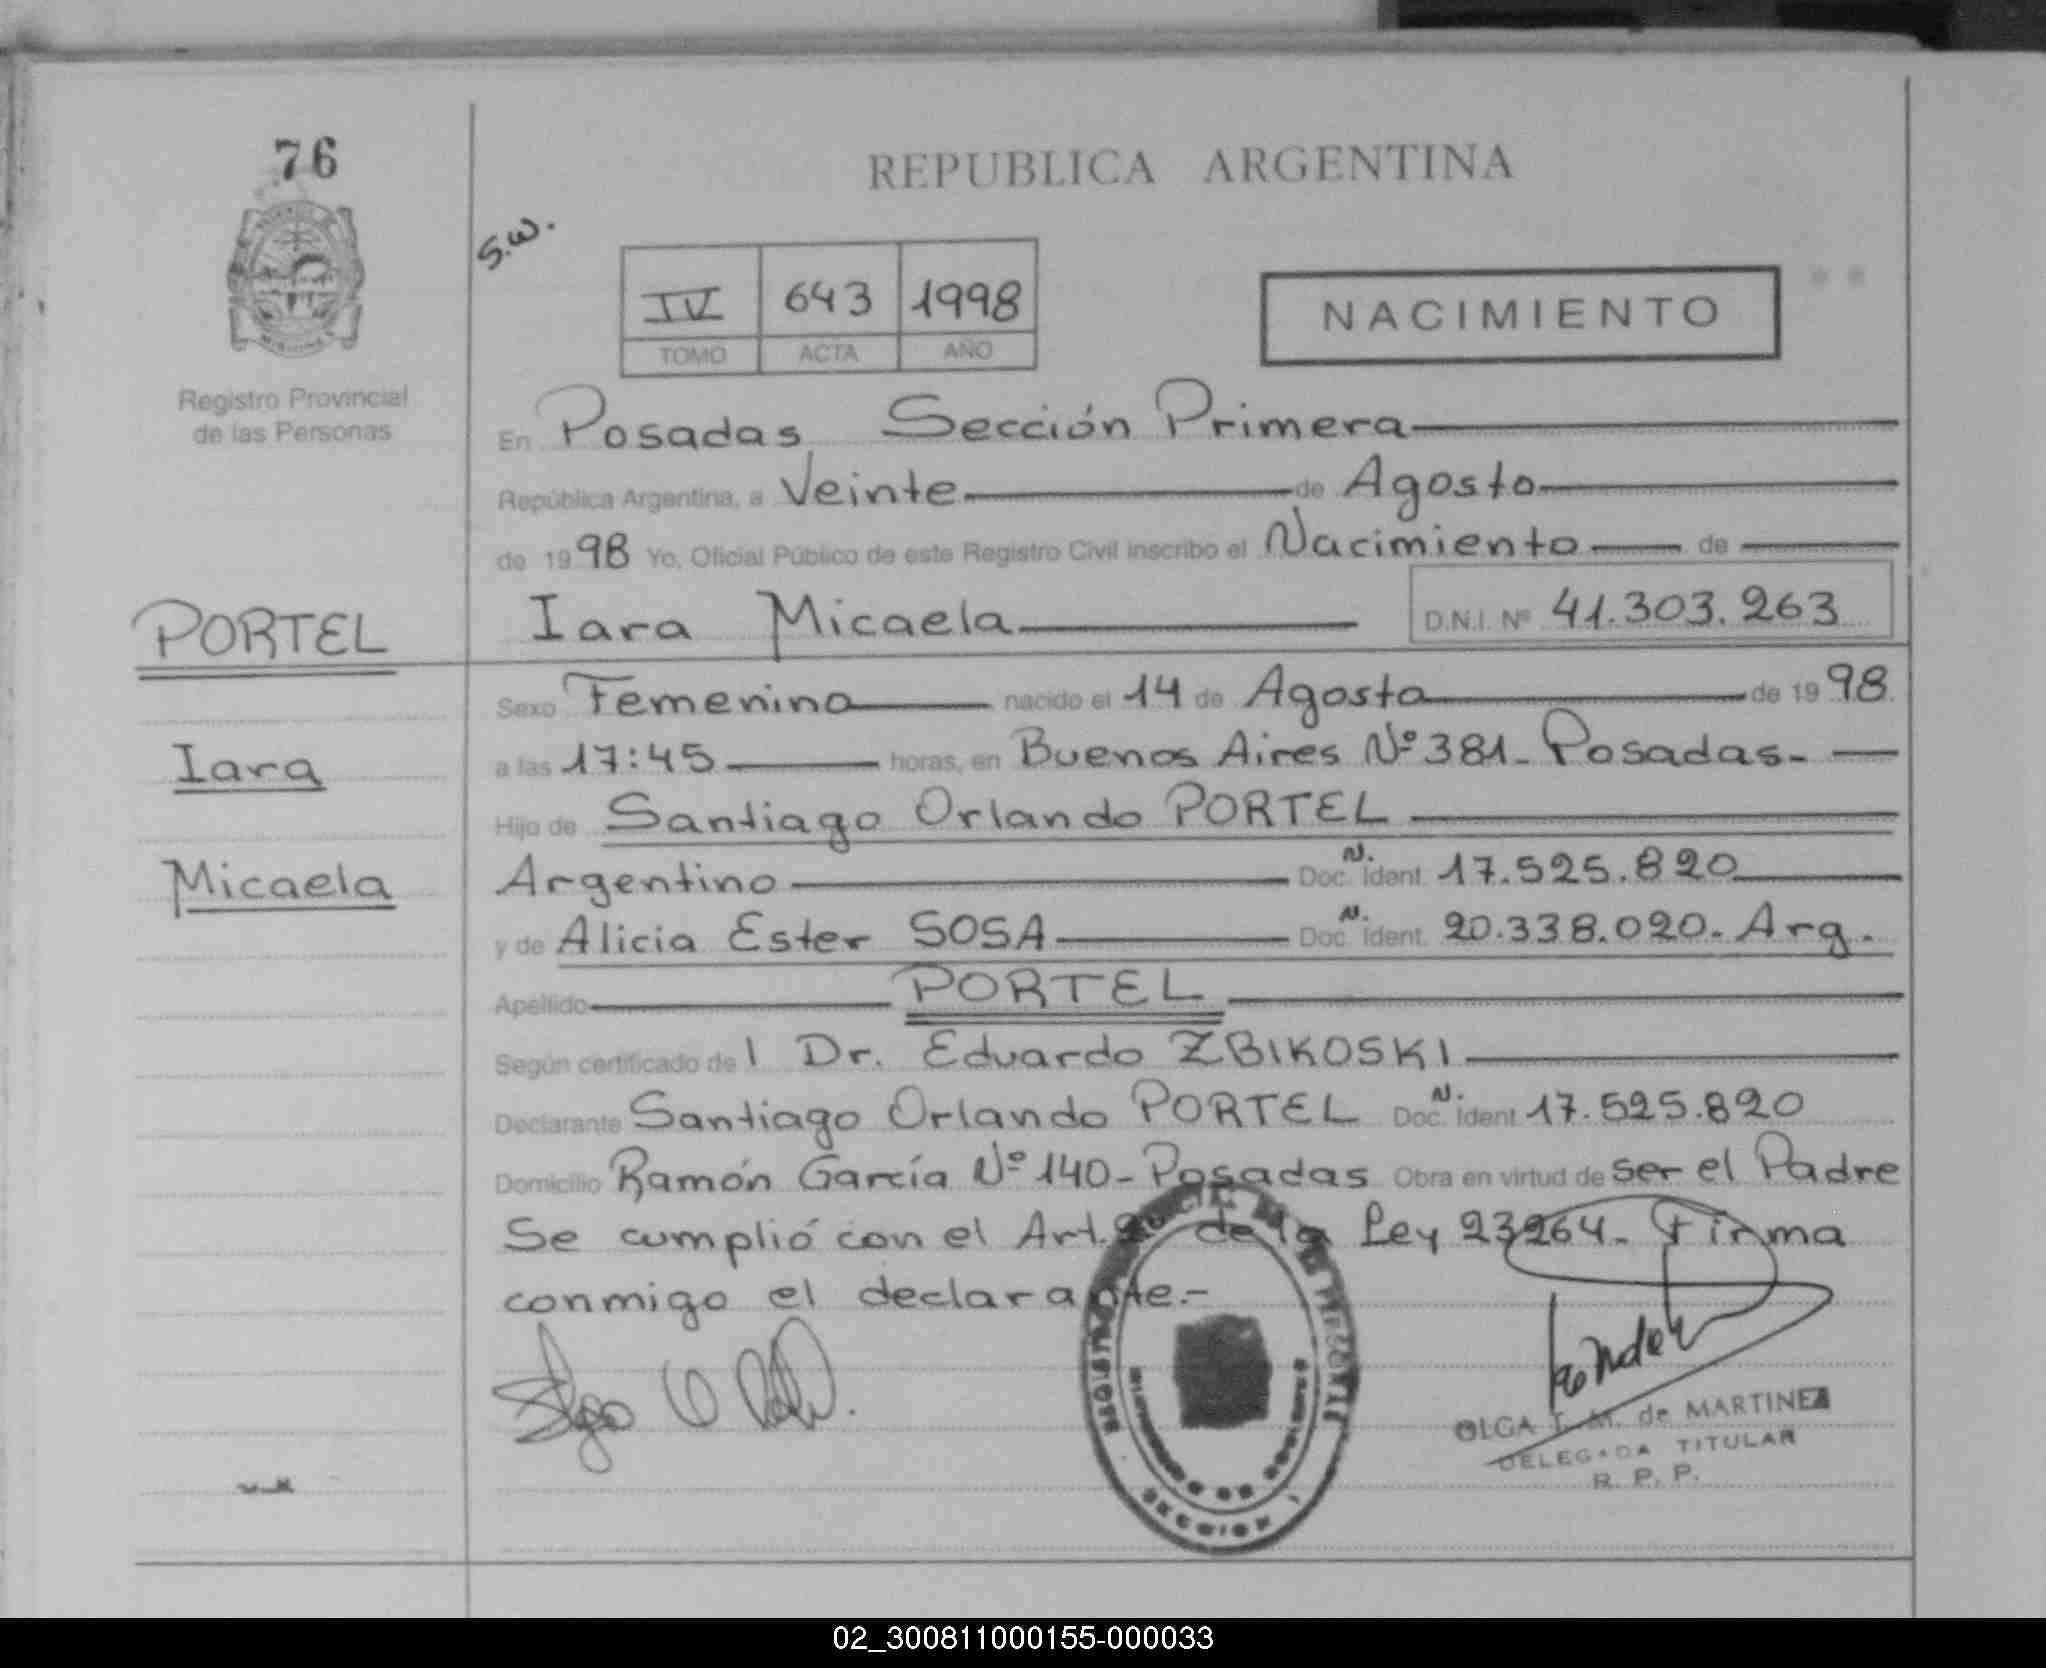 76
REPUBLICA ARGENTINA
S.W.
IV 643 1998
TOMO ACTA AÑO
NACIMIENTO
Registro Provincial
de las Personas
En Posadas Sección Primera
República Argentina, a Veinte de Agosto
de 1998 Yo, Oficial Público de este Registro Civil inscribo el Nacimiento de
PORTEL
Iara Micaela D.N.I. Nº 41.303.263
Sexo Femenino nacido el 14 de Agosto de 1998
Iara
a las 17:45 horas, en Buenos Aires Nº 381- Posadas-
Hijo de Santiago Orlando PORTEL
Micaela
Argentino Doc. N. Ident. 17.525.820
y de Alicia Ester SOSA Doc. N. Ident. 20.338.020. Arg.
Apellido PORTEL
Según certificado de l Dr. Eduardo ZBIKOSKI
Declarante Santiago Orlando PORTEL Doc. N. Ident. 17.525.820
Domicilio Ramón García Nº 140- Posadas Obra en virtud de ser el Padre
Se cumplió con el Art. de la Ley 23264- Firma
conmigo el declarante.-
OLGA I. M. de MARTINEZ
DELEGADA TITULAR
R. P. P.
SECCION 1
02_300811000155-000033